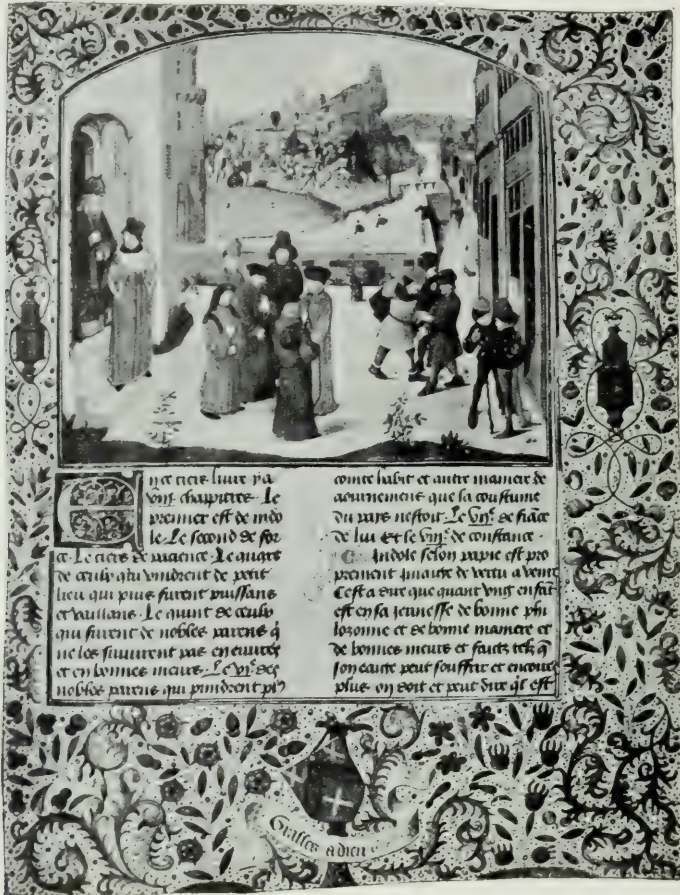 En ce tiers livre y a
viij chappitres. Le
premier est de indo
le. Le second de for
ce. Le tiers de pacience. Le quart
de ceulx qui vindrent de petit
lieu qui puis furent puissans
et vaillans. Le quint de ceulx
qui furent de nobles parens q̄
ne les suiuirent pas en euures
et en bonnes meurs. Le vjᵉ des
nobles parens qui prindrent
comte habit et autre maniere de
aournemens que la coustume
du pays nestoit. Le vijᵉ de fiāce
de lui Et le viijᵉ de constance.
Indole selon papie est pro
prement ymaige de vertu a venir
Cest a dire que quant vng enfāt
est en sa jeunesse de bonne phi
lozomie et de bonne maniere et
de bonnes meurs et faictz telz q̄
son eaige peut souffrir et encores
plus on doit et peut dire ql̄ est
Grasses a dieu